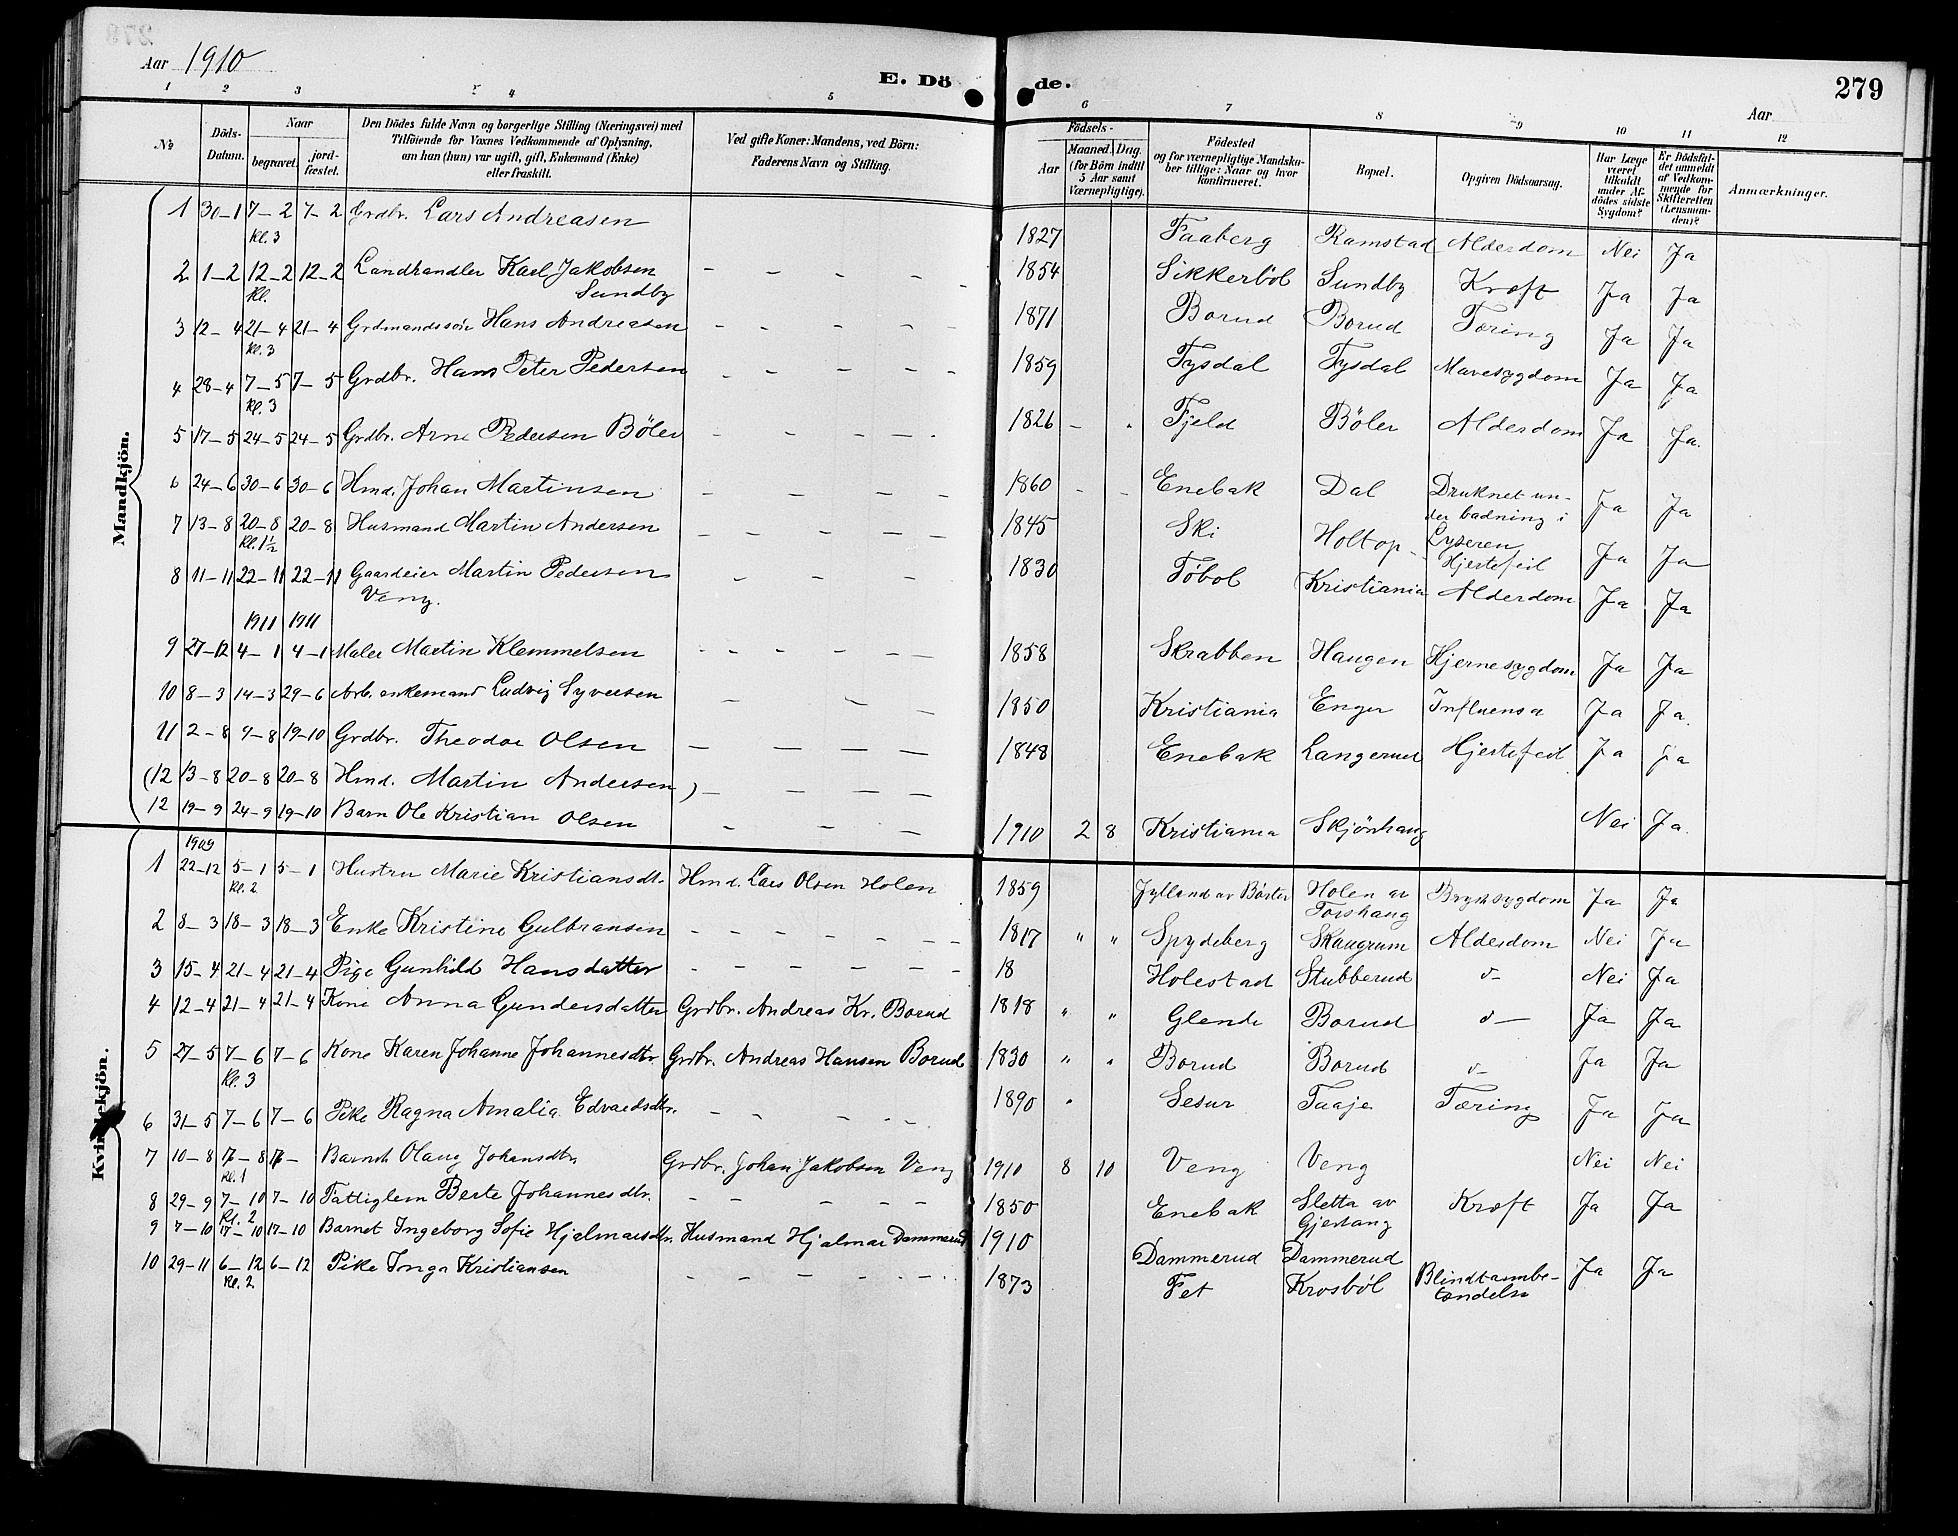 Aar 1910
E. Döde.
279
Aar
1 2 3 4 5 6 7 8 9 10 11 12
№
Döds-Datum.
Naar
begravet.
jordfæstet.
Den Dödes fulde Navn og borgerlige Stilling (Næringsvei) med
Tilföiende for Voxnes Vedkommende af Oplysning,
om han (hun) var ugift, gift, Enkemand (Enke)
eller fraskilt.
Ved gifte Koner: Mandens, ved Börn:
Faderens Navn og Stilling.
Födsels-
Aar
Maaned. Dag.
(for Börn indtil 5 Aar samt Værnepligtige).
Födested
og for værnepligtige Mandskaber tillige: Naar og hvor konfirmeret.
Bopæl.
Opgiven Dödsaarsag.
Har Læge været tilkaldt under Afdödes sidste Sygdom?
Er Dödsfaldet anmeldt af Vedkommende for Skifteretten (Lensmanden)?
Anmærkninger.
Mandkjön.
1 30-1 7-2 7-2 Grdbr. Lars Andreasen 1827 Faaberg Ramstad Alderdom Nei Ja
Kl. 3
2 1-2 12-2 12-2 Landhandler Karl Jakobsen - - - - - 1854 Sikkerböl Sundby Kræft Ja Ja
Kl. Sundby
3 12-4 21-4 21-4 Grdmandssön Hans Andreasen - - - - - 1871 Borud Borud Tæring Ja Ja
Kl. 3
4 28-4 7-5 7-5 Grdbr. Hans Peter Pedersen - - - - - 1859 Tysdal Tysdal Mavesygdom Ja Ja
Kl. 3
5 17-5 24-5 24-5 Grdbr. Arne Pedersen Böler - - - - - 1826 - - Fjeld Böler Alderdom Ja Ja.
6 24-6 30-6 30-6 Hmd. Johan Martinsen - - - - 1860 - - Enebak Dal Druknet un-
der badning i Ja Ja
Lyseren
7 13-8 20-8 20-8 Husmand Martin Andersen - - - - - 1845 Ski Holtop Hjertefeil Ja Ja
Kl. 1½
8 11-11 22-11 22-11 Gaardeier Martin Pedersen - - - - 1830 Töbol Kristiania Alderdom Ja Ja
Veng.
1911 1911
9 27-12 4-1 4-1 Maler Martin Klemmetsen - - - - - 1858 Skrabben Haugen Hjernesygdom Ja Ja
10 8-3 14-3 29-6 Arb. enkemand Ludvig Syversen - - - 1850 Kristiania Enger Influensa Ja Ja.
11 2-8 9-8 19-10 Grdbr. Theodor Olsen - - - - 1848 Enebak Langerud Hjertefeil Ja Ja
(12 13-8 20-8 20-8 Hmd. Martin Andersen) - - - -
12 19-9 24-9 19-10 Barn Ole Kristian Olsen - - - 1910 2 8 Kristiania Skjönhaug Nei Ja.
Kvindekjön.
1909
1 22-12 5-1 5-1 Hustru Marie Kristiansdt. Hmd. Lars Olsen Holen 1859 Jylland av Börter Holen av Brystsygdom Ja Ja
Kl. 2 Torshaug
2 8-3 18-3 18-3 Enke Kristine Gulbransen - - - - - - - 1817 " " Spydeberg Skaugrum Alderdom Nei Ja
3 15-4 21-4 21-4 Pige Gunhild Hansdatter - - - - - - 18 Holestad Stubberud d- Nei Ja
4 12-4 21-4 21-4 Kone Anna Gundersdatter Grdbr. Andreas Kr. Borud 1818 " " Glende Borud d- Ja Ja
5 27-5 7-6 7-6 Kone Karen Johanne Johannesdtr. Grdbr. Andreas Hansen Borud 1830 " " Borud Borud d- Ja Ja
Kl. 3
6 31-5 7-6 7-6 Pike Ragna Amalia Edvardsdtr. - - - - - 1890 " Sesur Taaje Tæring Ja Ja
7 10-8 17-8 17- Barnet Olaug Johansdtr. Grdbr. Johan Jakobsen Veng 1910 8 10 Veng Veng Nei Nei
Kl. 1
8 29-9 7-10 7-10 Fattiglem Berte Johannesdtr. - - - - - 1850 Enebak Sletta av Kræft Ja Ja
Kl. 2 Gjestang
9 7-10 17-10 17-10 Barnet Ingeborg Sofie Hjalmarsdtr. Husmand Hjalmar Dammerud 1910 Dammerud Dammerud
10 29-11 6-12 6-12 Pike Inga Kristiansen - - - - - - 1873 Fet Krosböl Blindtarmbe- Ja Ja
Kl. 2 tændelse